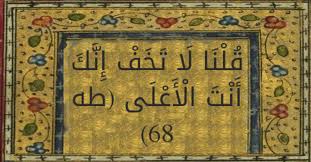 قُلْنَا لَا تَخَفْ إِنَّكَ
أَنْتَ الْأَعْلَى (طه
68)